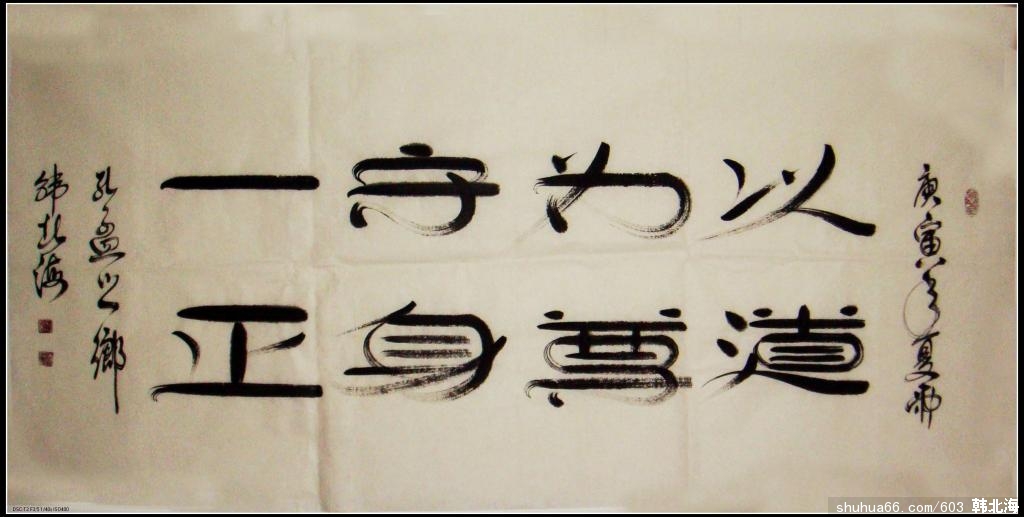 庚寅年夏
以道
为尊
守身
一正
孔孟之鄉
韩北海
shuhua66.com/603 韩北海